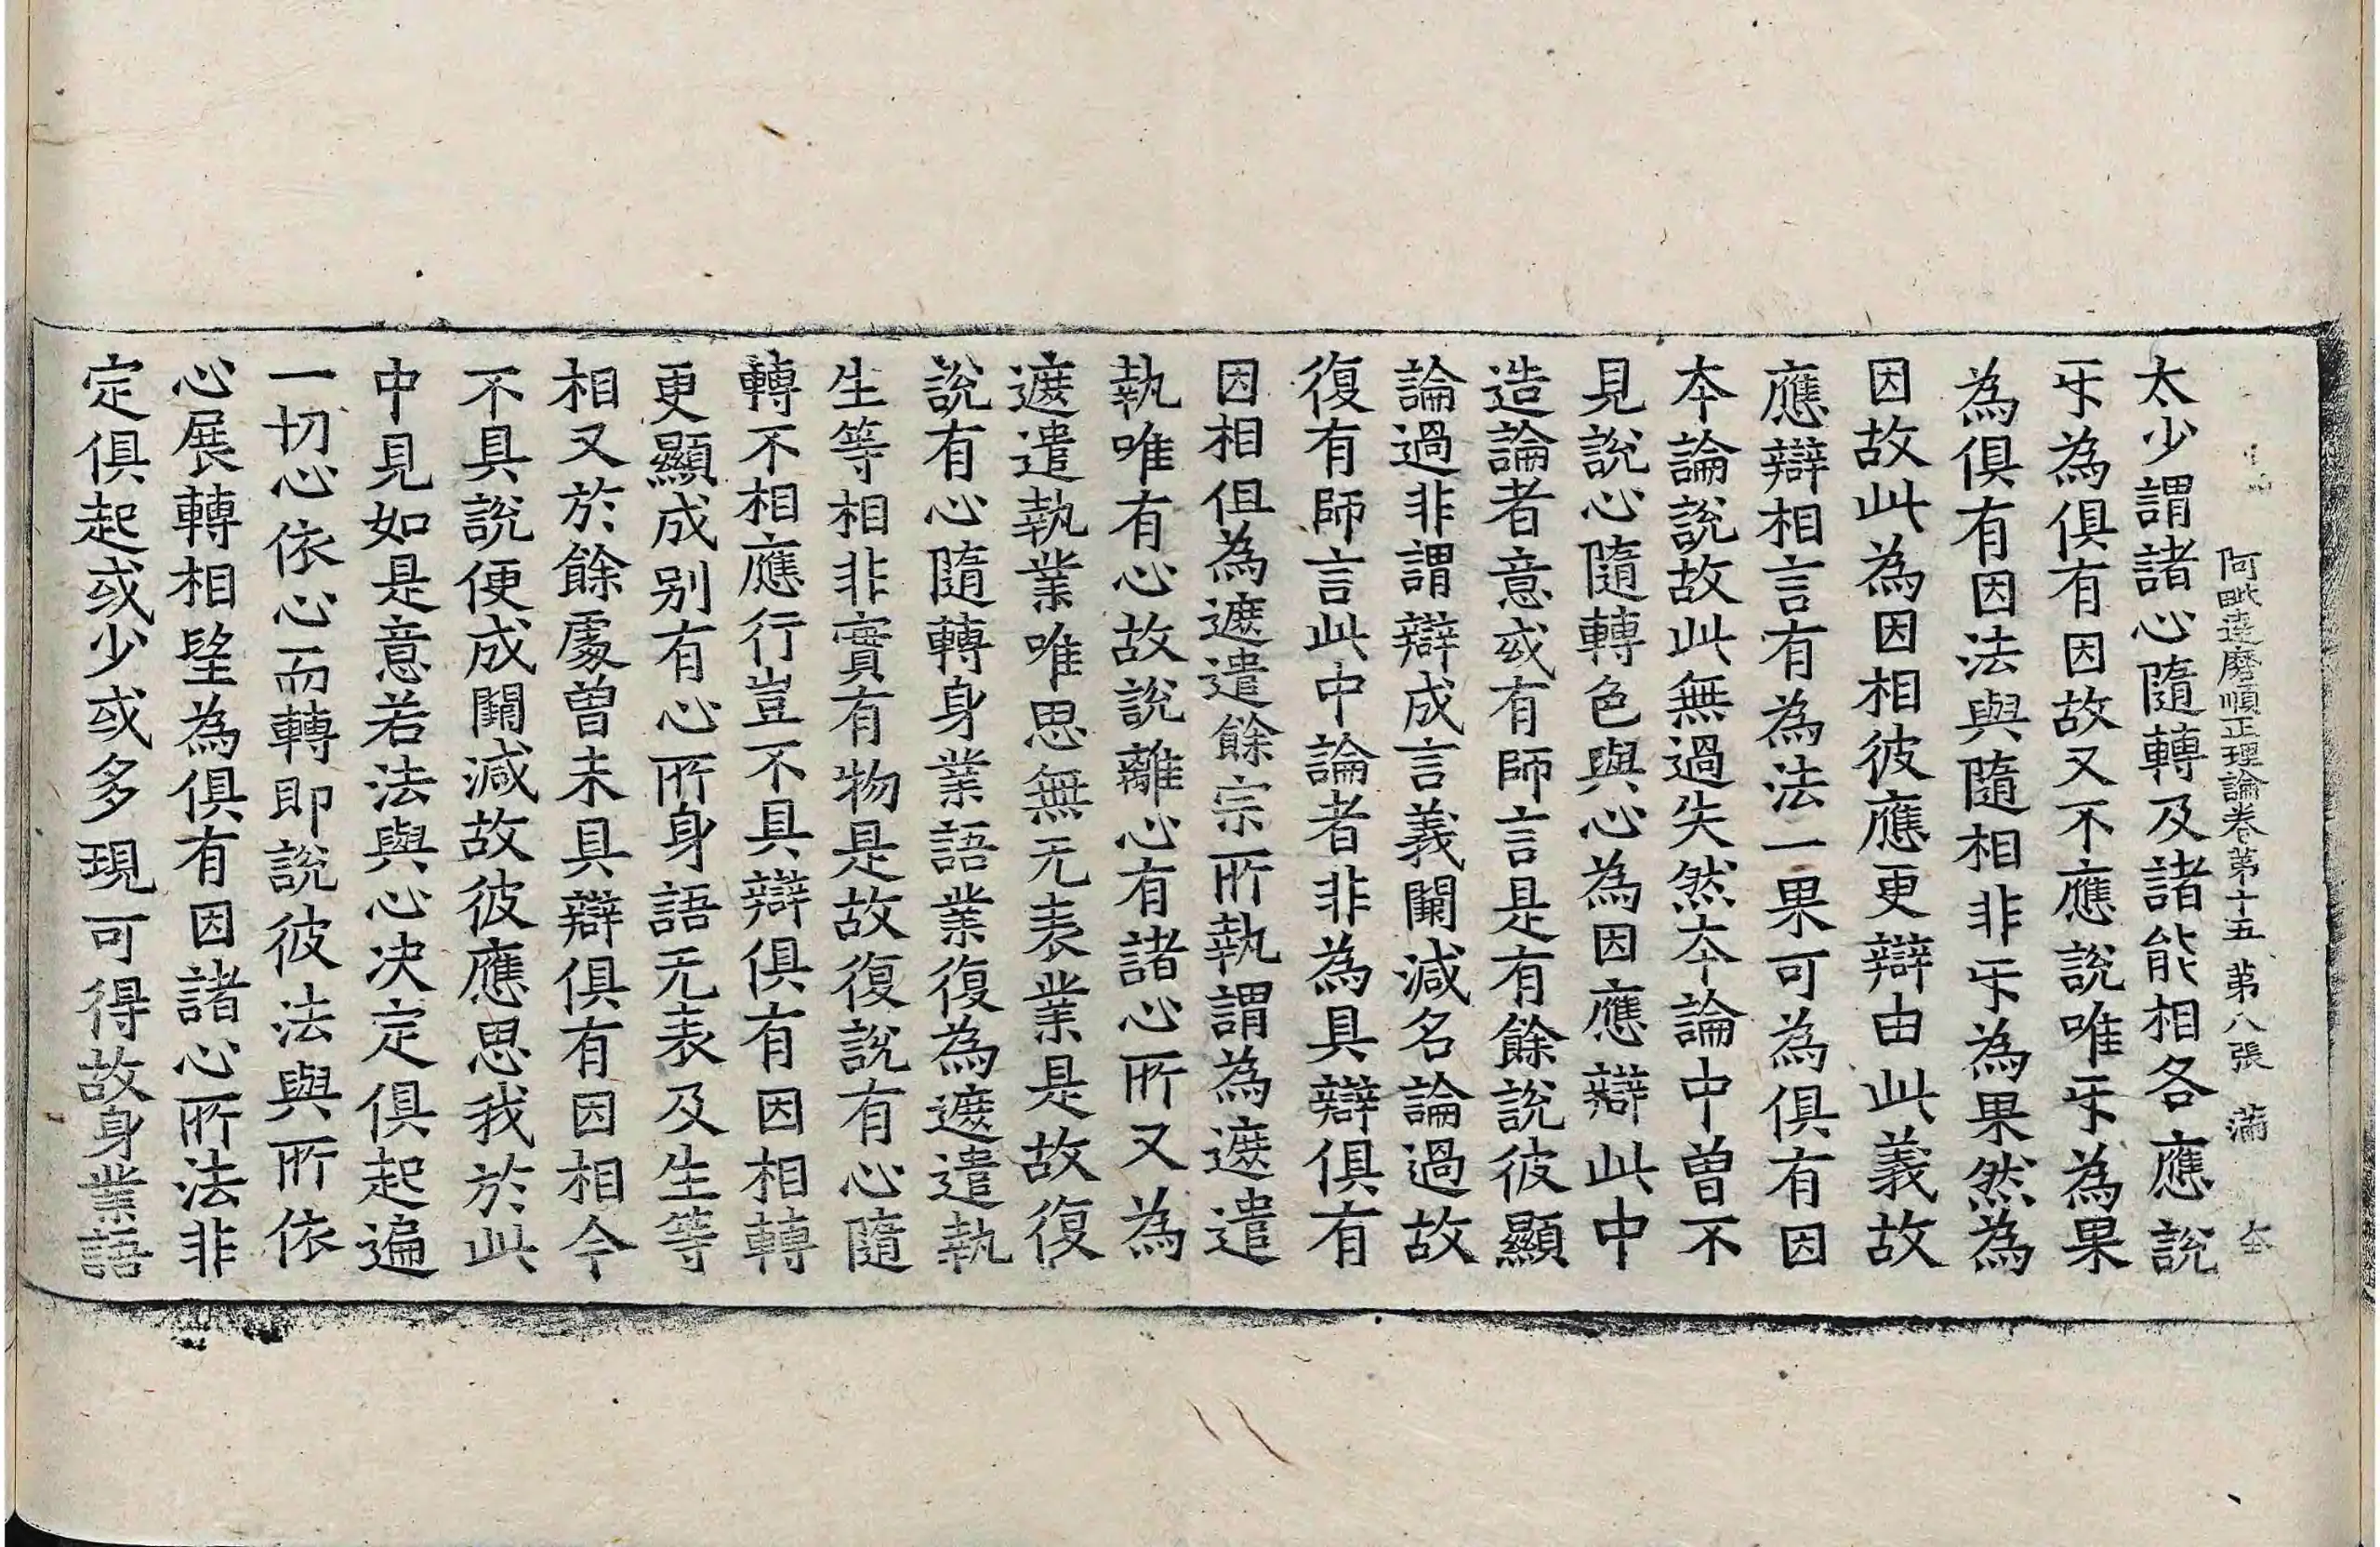 阿毗達磨順正理論卷第十五 第八張 滿
太少謂諸心隨轉及諸能相各應說
㸦為俱有因故又不應說唯㸦為果
為俱有因法與隨相非㸦為果然為
因故此為因相彼應更辯由此義故
應辯相言有為法一果可為俱有因
夲論說故此無過失然夲論中曾不
見說心隨轉色與心為因應辯此中
造論者意或有師言是有餘說彼顯
論過非謂辯成言義闕減名論過故
復有師言此中論者非為具辯俱有
因相但為遮遣餘宗所執謂為遮遣
執唯有心故說離心有諸心所又為
遮遣執業唯思無无表業是故復
說有心隨轉身業語業復為遮遣執
生等相非實有物是故復說有心隨
轉不相應行豈不具辯俱有因相轉
更顯成別有心所身語无表及生等
相又於餘處曾未具辯俱有因相今
不具說便成闕減故彼應思我於此
中見如是意若法與心決定俱起遍
一切心依心而轉即說彼法與所依
心展轉相望為俱有因諸心所法非
定俱起或少或多現可得故身業語